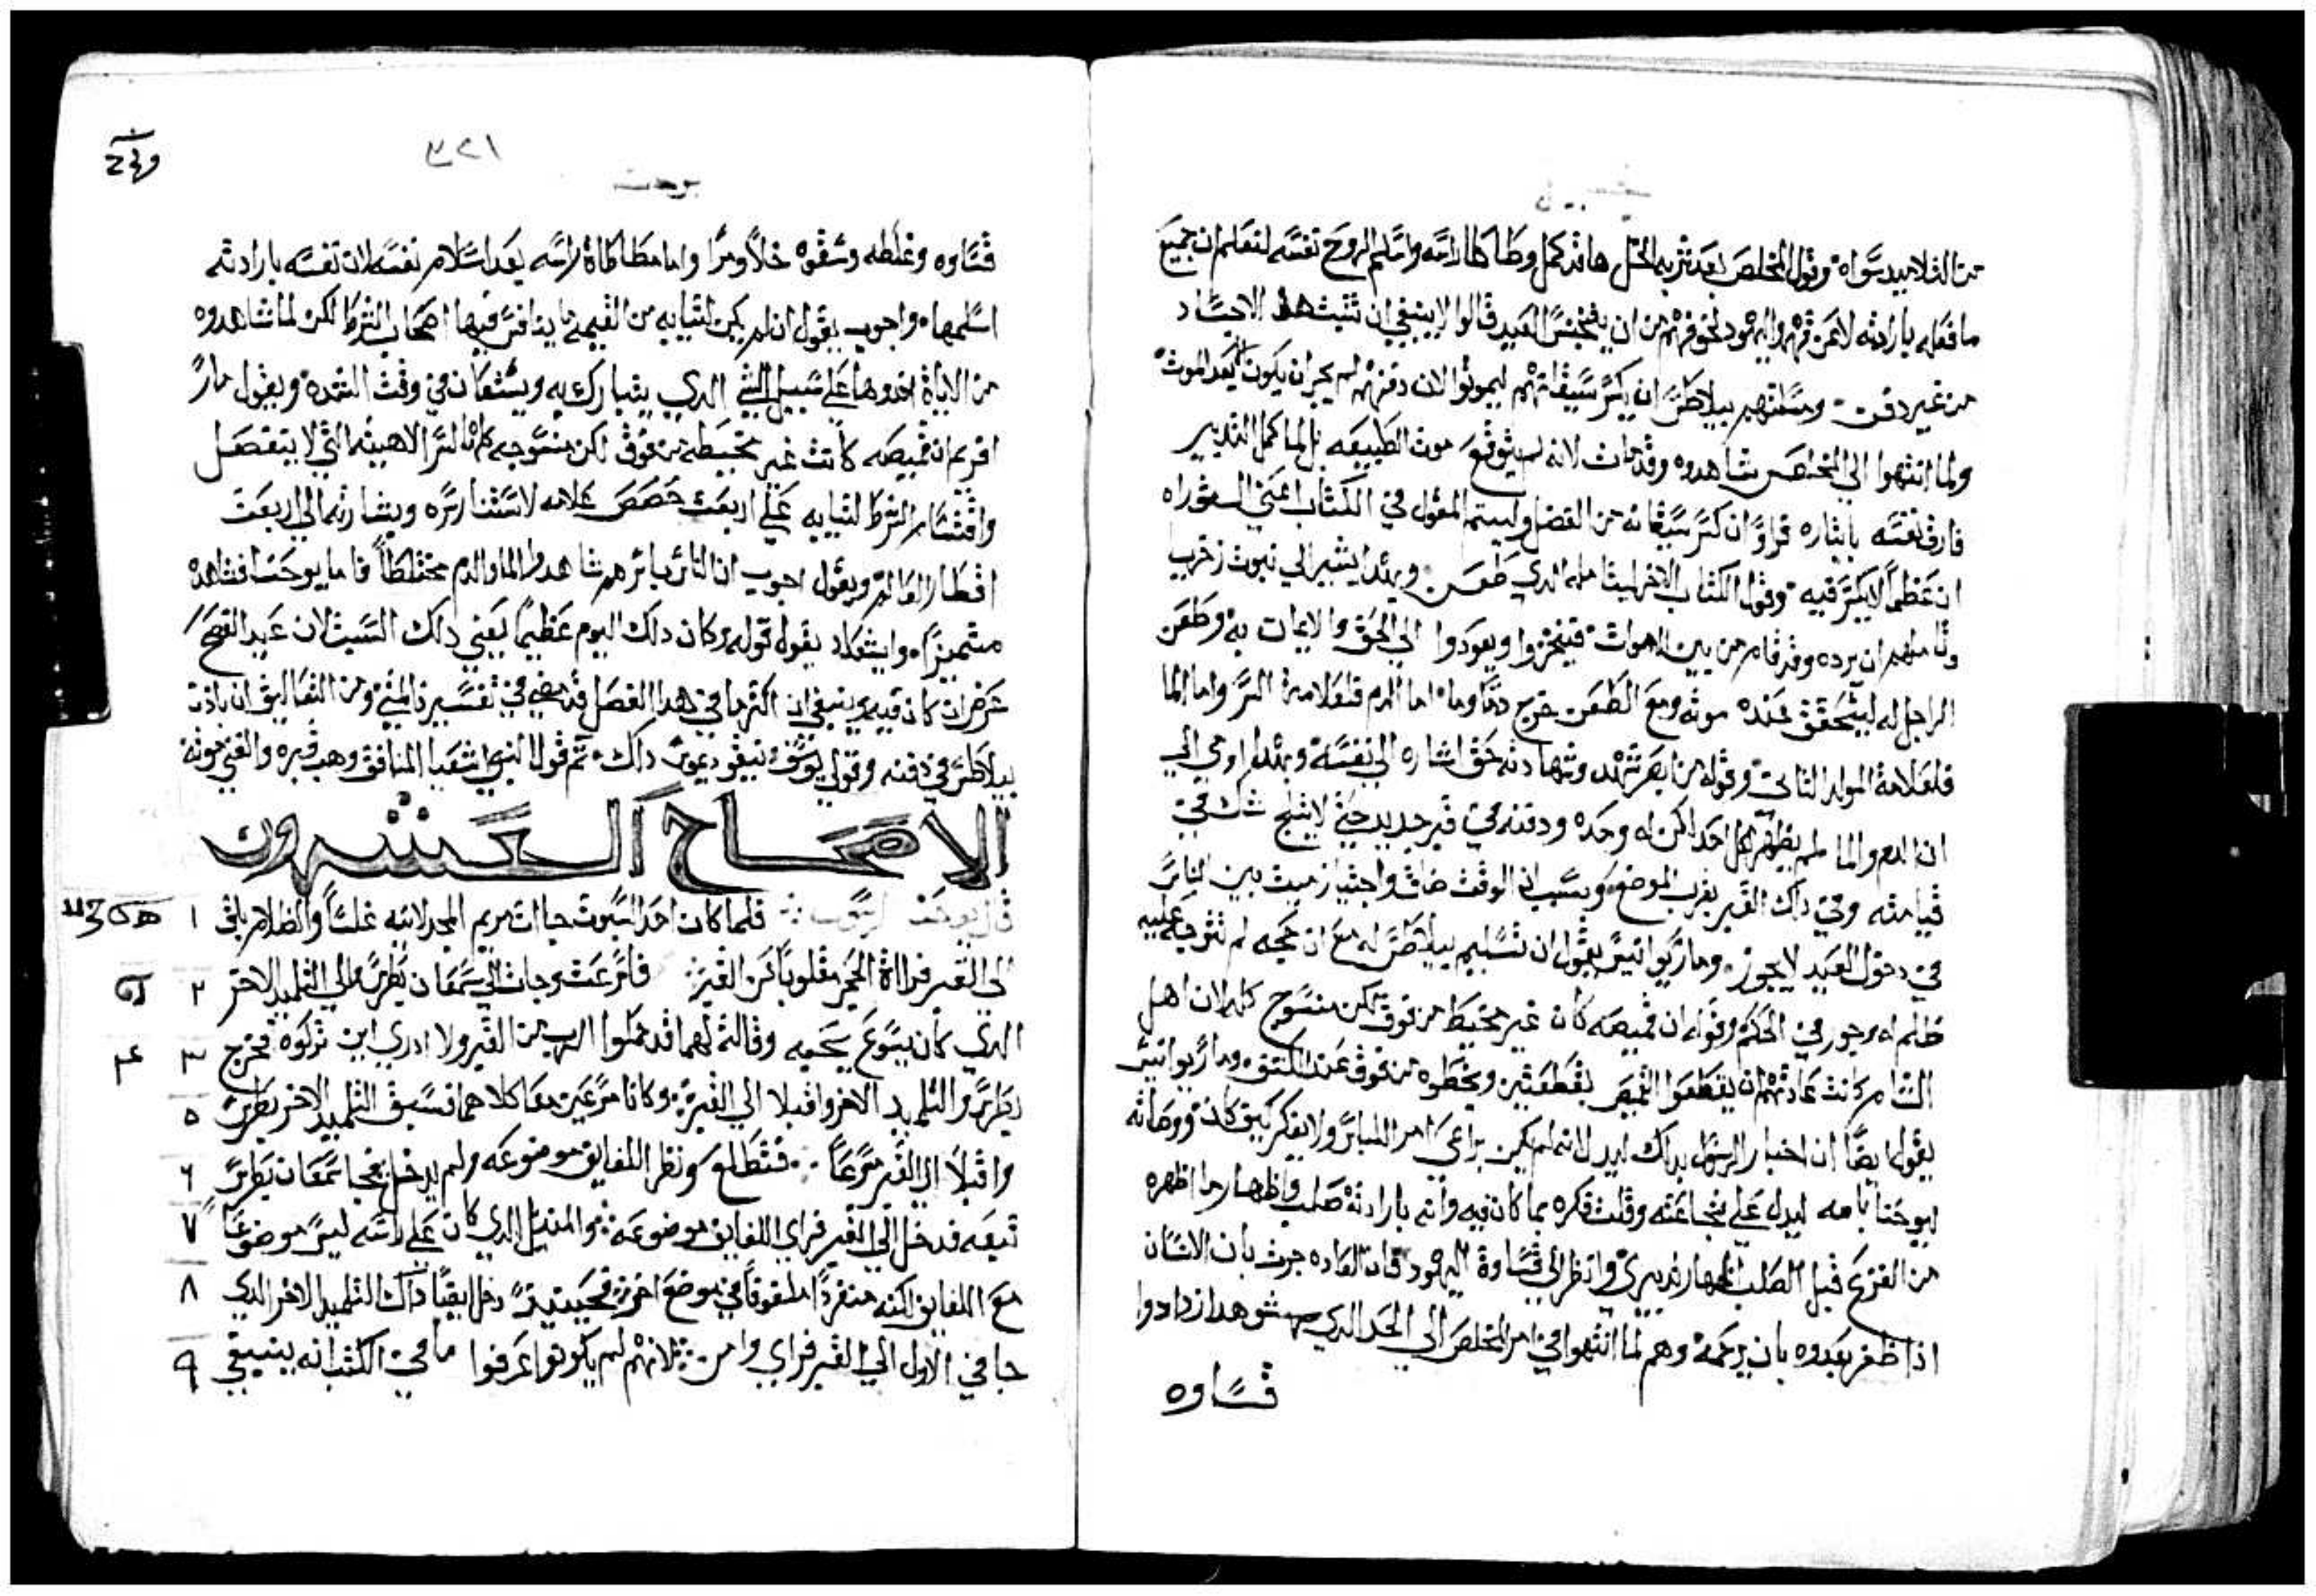 تفسير
من التلاميد سواه وقول المخلص بعد شربه الخل ها قد كمل وطاطا راسه واسلم الروح نفسه لنعلم ان جميع
ما فعله بارادته لا عن قهر واليهود لخوفهم من ان يتنجس العيد قالوا لا ينبغي ان تثبت هده الاجساد
من غير دفن ومسلتهم بيلاطس ان يكسر سيقانهم ليموتوا لان دفنهم لم يجز ان يكون الا بعد الموت
ولما انتهوا الي المخلص شاهدوه وقد مات لانه لم يتوقع موت الطبيعه بل لما كمل التدبير
فارق نفسه بايثاره فراوا ان كسر سيقانه من الفضل وليتم المقول في الكتاب اعني التوراه
ان عظما لا يكسر فيه وقول الكتاب الاخر ليتاملوا الدي طعن وبهدا يشير الي نبوة زخريا
وتاملهم ان يرده وقد قام من بين الاموات فيتحزوا ويعودوا الي الحق والايمان به وطعن
الراجل له ليتحقق عنده موته ومع الطعن خرج دم وما اما الدم فلعلامة السر واما الما
فلعلامة المولد التاني وقوله من ابصر شهد وشهادته حق اشاره الي نفسه وبهدا اومي الي
ان الدم والما لم يظهر لكل احد لكن له وحده ودفنه في قبر جديد حتي لا يتلج شك في
قيامته وفي داك القبر بقرب الموضع وبسبب ان الوقت ضاق واجتياز ميت بين الناس
في دخول العيد لا يجوز ومار يوانيس يقول ان تسليم بيلاطس له مع ان حجه لم تتوجه عليه
ظلم له وجور في الحكم وقوله ان قميصه كان غير مخيط من فوق لكن منسوج كله لان اهل
الشام كانت عادتهم ان يقطعوا القميص بقطعتين ويخيطوه من فوق عند الكتف ومار يوانيس
يقول ايضا ان اختيار الرسول بداك ليدل لانه لم يكن يراعي امر اللباس ولا يفكر كيف كان ووصاته
ليوحنا بامه ليدل علي شجاعته وقلت فكره بما كان فيه وانه بارادته صلب واظهار ما اظهره
من الفزع قبل الصلب اظهار تدبيري وانظر الي قساوة اليهود فان العاده جرت بان الانسان
ادا ظفر بعدوه بان يرحمه وهم لما انتهوا في امر المخلص الي الحد الدي بهتوا هدا ازدادوا
قساوه
يوحنا
٣٢١
قساوه وغلظه وسقوه خلا ومرا واما مطاطاة راسه بعد اسلام نفسه لان نفسه بارادته
اسلمها واجوب يقول ان لم يكن لتيابه من القيمه ما يتنافس فيها اصحاب الشرط لكن لما شاهدوه
من الاياة اخدوها علي سبيل الشي الدي يتبارك به ويستعان في وقت الشده ويقول مار
افريم ان قميصه كانت غير مخيطه من فوق لكن منسوجه كلها لسر الاهيته التي لا تنفصل
واقتسام الشرط لتيابه علي اربعت حصص علامه لاستنار سره وبشارته الي اربعت
اقطار العالم ويقول اجوب ان الناس باسرهم شاهدوا الما والدم مختلطا فاما يوحنا فشاهده
متميزا وايشعداد يقول قوله وكان دلك اليوم عظيما يعني دلك السبت لان عيد الفصح
عرض ان كان فيه وينبغي ان اكثر ما في هدا الفصل قد مضي في تفسيرنا لمتي ومن التفاليق ان بادن
بيلاطس في دفنه وقول يوسف ونيقوديموس دلك تم قول النبي اشعيا المنافق وهب قبره والغني موته
الاصحاح العشرون
قال يوحنا الرسول فلما كان احد السبوت جاات مريم المجدلانيه غلسا والظلام باقي ١
الي القبر فراات الحجر مقلوبا عن القبر فاسرعت وجات الي سمعان بطرس والي التلميد الاخر ٢
الدي كان يسوع يحبه وقالت لهما قد حملوا الرب من القبر ولا ادري اين تركوه فخرج ٣
بطرس والتلميد الاخر واقبلا الي القبر وكانا مسرعين معا كلاهما فسبق التلميد الاخر بطرس ٥
واقبلا الي القبر مسرعا فتطلع ونظر اللفايف موضوعه ولم يدخل فجا سمعان بطرس ٦
تبعه فدخل الي القبر فراي اللفايف موضوعه والمنديل الدي كان علي راسه ليس موضوعا ٧
مع اللفايف لكنه منفردا ملفوفا في موضع اخر فحينيد دخل ايضا داك التلميد الاخر الدي ٨
جا في الاول الي القبر فراي وامن لانهم لم يكونوا عرفوا ما في الكتب انه ينبغي ٩